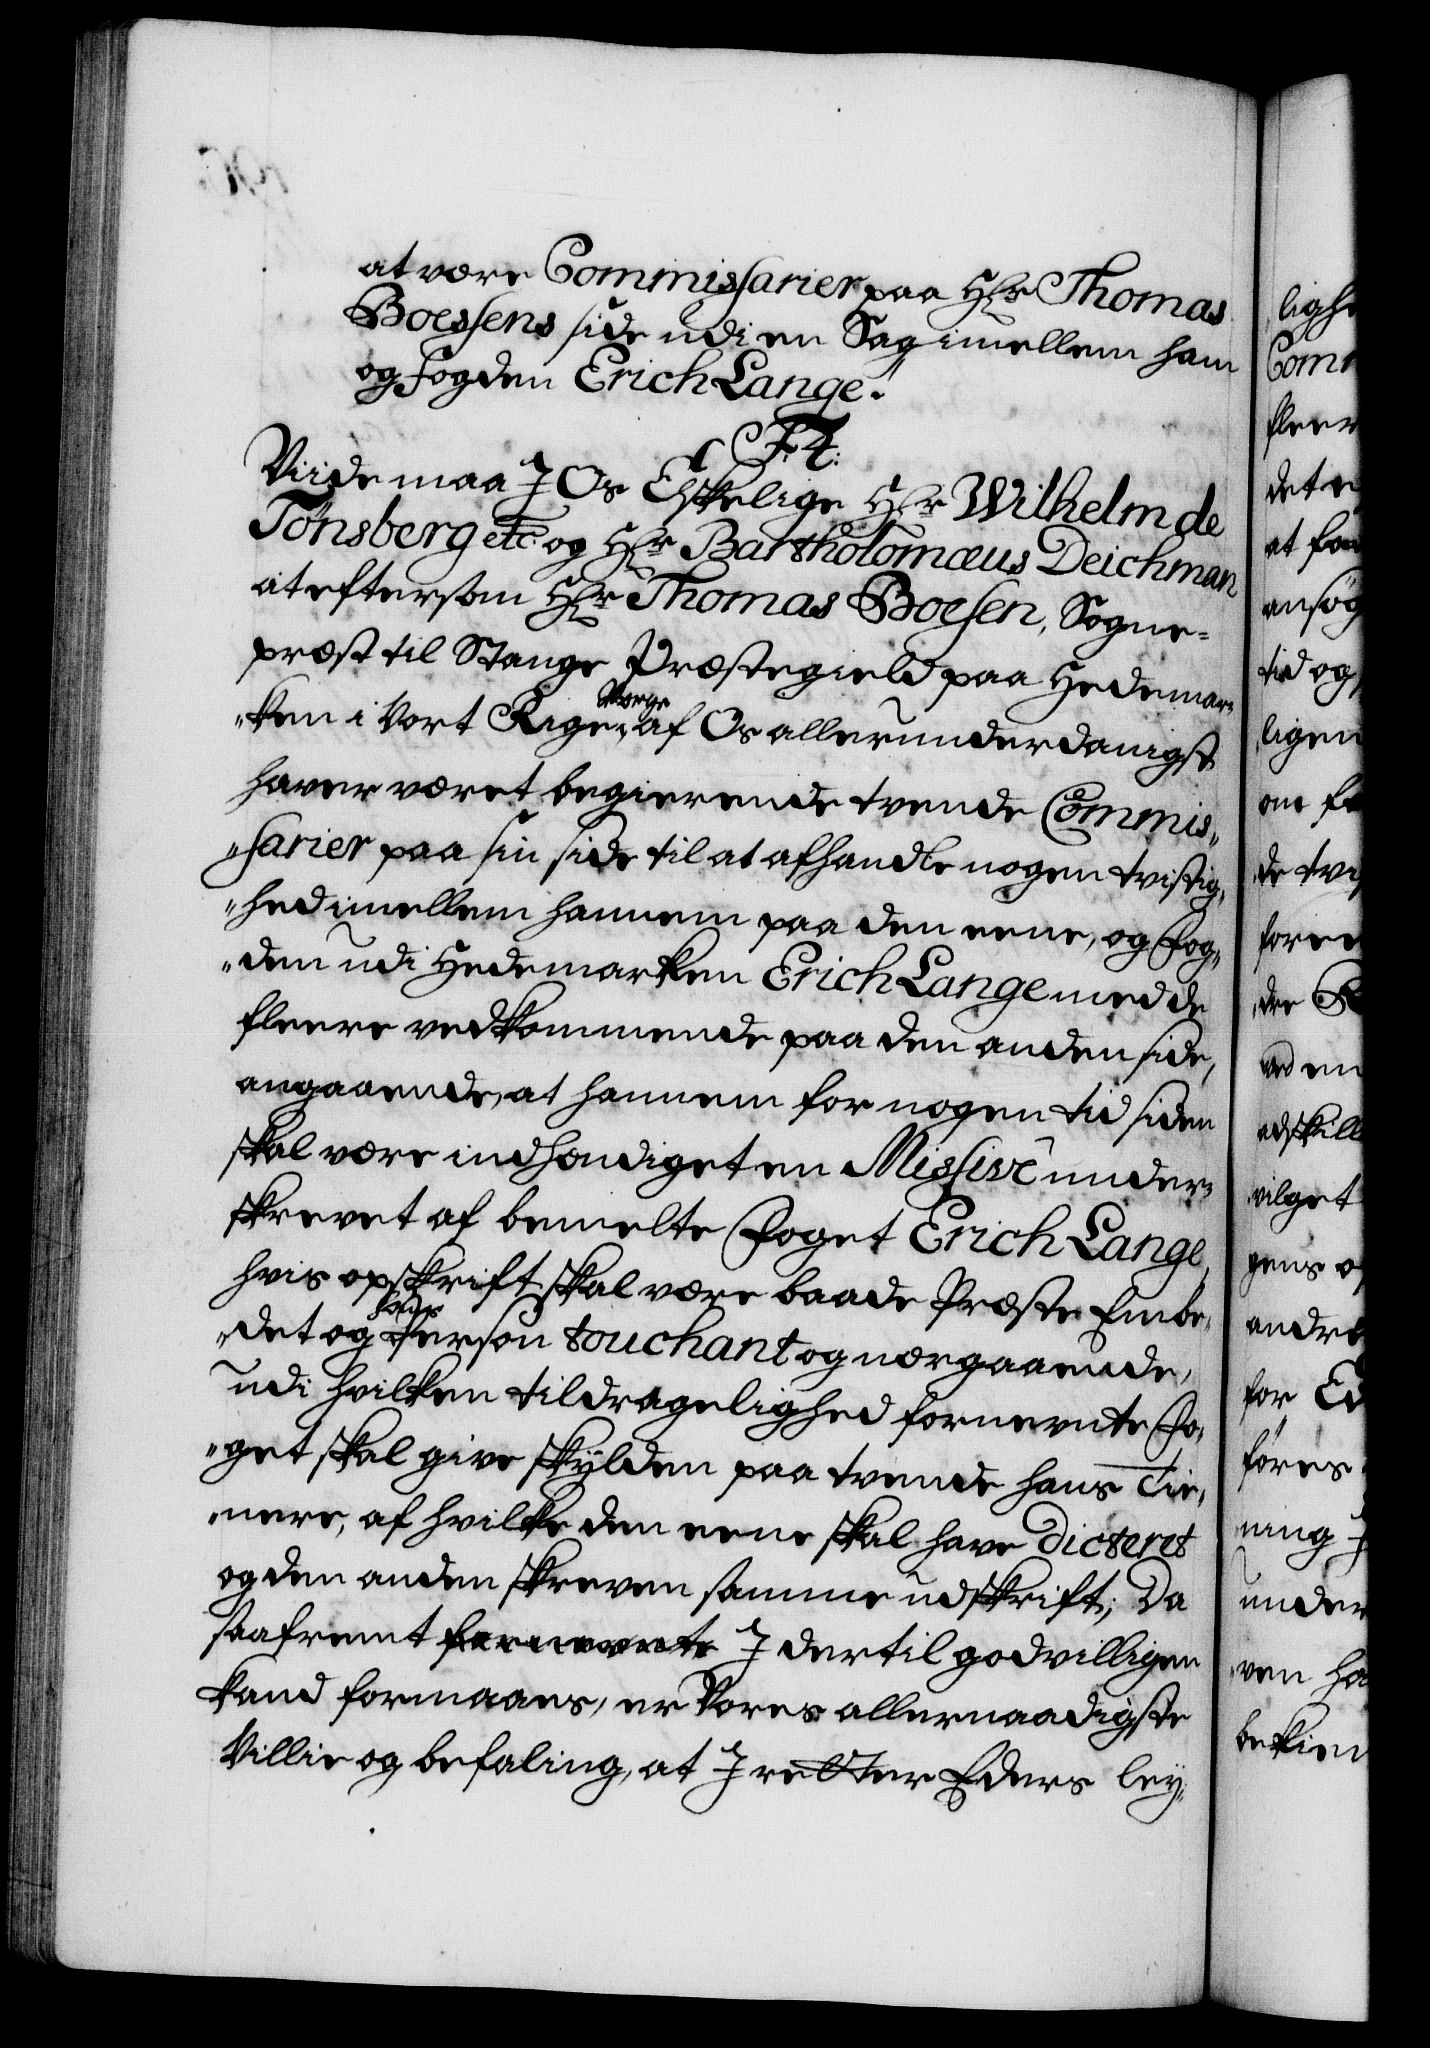 at være Commissarier paa Hr Thomas
Boessens side udi en Sag imellem ham
og Fogden Erich Lange.
F. 4.
Viide maa I Os Elskelige Hr Wilhelm de
Tønsberg etc. og Hr Bartholomæus Deichman
at eftersom Hr Thomas Boesen, Sogne=
præst til Stange Præstegield paa Hedemar=
"ken i Vort Rige Norge af Os allerunderdanigst
haver været begierende tvende Commis"
"sarier paa sin side til at afhandle nogen tvistig"
"hed imellem hannem paa den eene, og Fog"
"den udi Hedemarken Erich Lange med de
fleere vedkommende paa den anden side,
angaaende, at hannem for nogen tid siden
skal være indhændiget en Missive under=
skrevet af bemelte Foget Erich Lange,
hvis opskrift skal være baade Præste Embe"
"det og hans Person touchant og nærgaaende,
udi hvilken tildragelighed fornevnte Fo"
"get skal give skylden paa tvende hans Tie"
"nere, af hvilke den eene skal have dicteret
og den anden skreven samme udskrift; Da
saafremt fornevnte I dertil godvilligen
kand formaaes, er Vores allernaadigste
Villie og befaling, at I retter Eders ley"
ligh
Com
fleer
det
at
ansøg
tid og
ligen
om
de tvi
foree
dre
ved en
adskill
vilget
gens
andre
for Ed
føres
ning I
under
ven ha
bekien